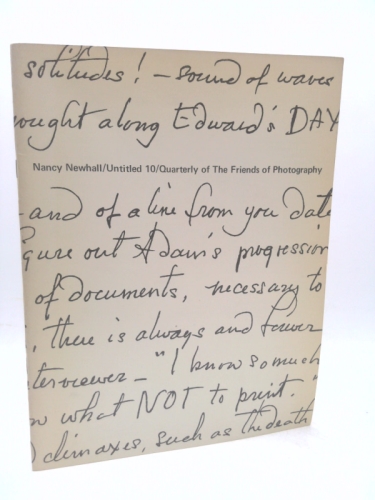 solitudes! – sound of waves
ought along Edward's DAY
Nancy Newhall/Untitled 10/Quarterly of The Friends of Photography
and of a line from you date
gure out Adam's progression
of documents, necessary to
, there is always and fewer
terviewer – "I know so much
w what NOT to print."
climaxes, such as the death